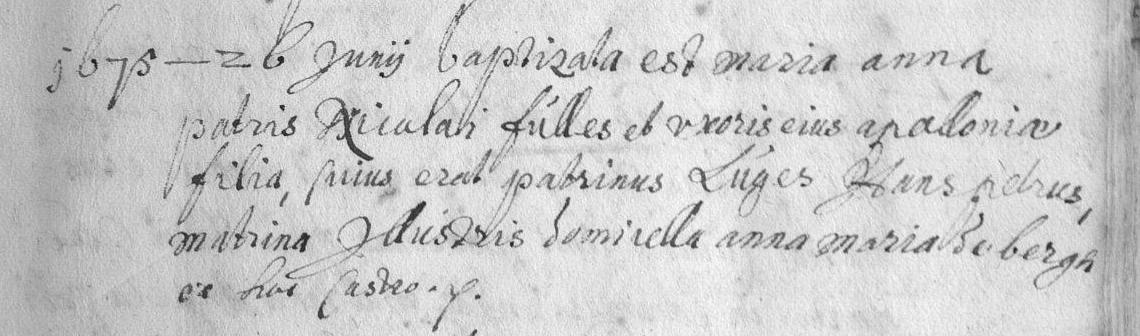 1675 — 26 Junij baptizata est maria anna
patris Nicolai fúlles et vxoris eius apallonia
filia, cuius erat patrinus Lúges Hans petrus,
matrina Illústris domicella anna maria de bergh
ex hoc castro.